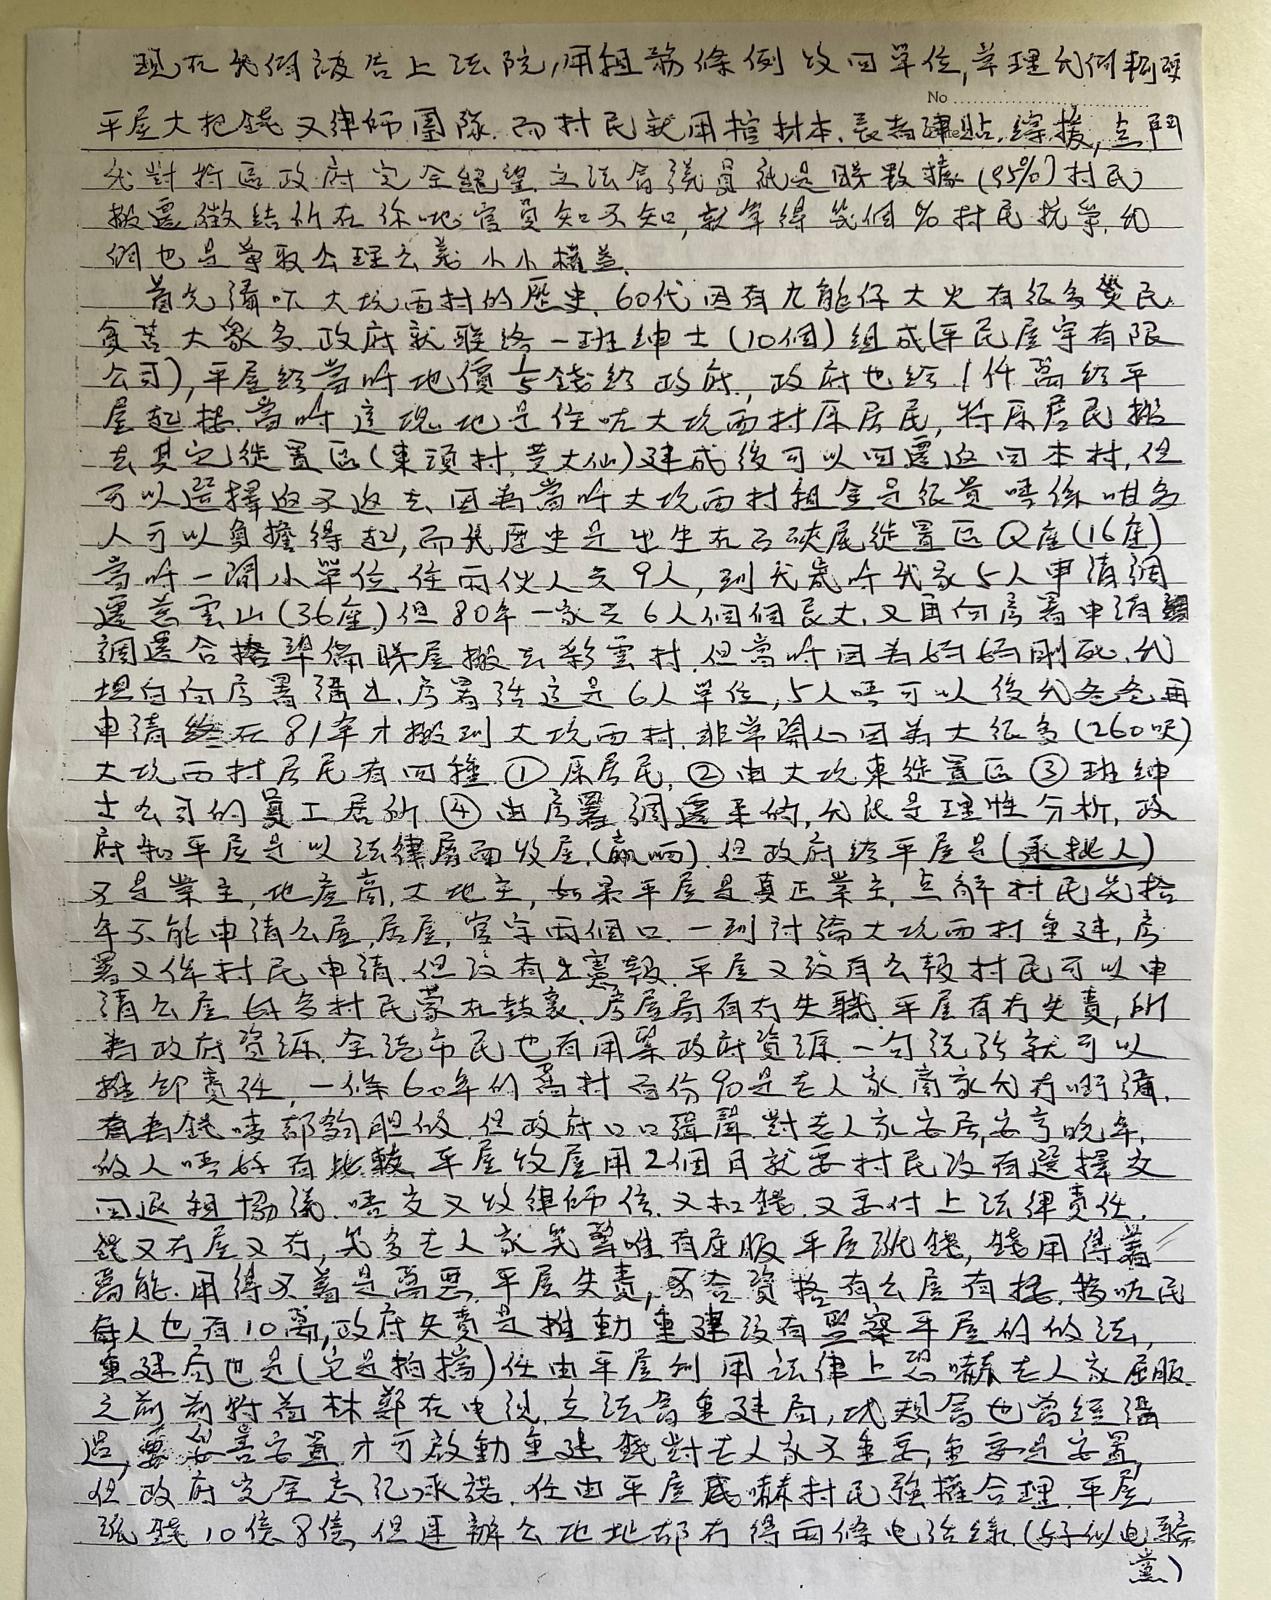 現在我們被告上法院,用租務條例收回單位,
No
平屋大把錢又律師團隊.而村民就用棺材本.長者津貼.綜援,点鬥
我對特區政府完全絕望.立法會議員祇是睇數據(95%)村民
搬遷徵結所在你哋官員知不知,就算得幾個%村民抗爭.我
們也是爭取公理公義小小權益.
首先講吓大坑西村的歷史.60代因有九龍仔大火有很多災民
貧苦大眾多.政府就聯絡一班紳士(10個)組成(平民屋宇有限
公司),平屋給當時地價⅓錢給政府,政府也給1仟萬給平
屋起樓.當時這塊地是住咗大坑西村原居民,將原居民搬
去其它徙置區(東頭村.黃大仙)建成後可以回遷返回本村,但
可以選擇返不返去.因為當時大坑西村租金是很貴唔係咁多
人可以負擔得起,而我歷史是出生在石硤尾徙置區Q座(16座)
當時一間小單位住兩伙人共9人,到我幾歲時我家5人申請調
遷慈雲山(36座)但80年一家共6人個個長大,又再向房署申請
調遷合格準備睇屋搬去彩雲村.但當時因為媽媽剛死.我
坦白向房署講出.房署話這是6人單位,5人唔可以後我爸爸再
申請終在81年才搬到大坑西村.非常開心因為大很多(260呎)
大坑西村居民有四種.①原居民,②由大坑東徙置區③班紳
士公司的員工居所④由房署調遷來的,我祇是理性分析,政
府和平屋是以法律層面收屋.(贏晒).但政府話平屋是(承批人)
又是業主,地產商,大地主,如果平屋是真正業主,点解村民幾拾
年不能申請公屋,居屋,官字兩個口.一到討論大坑西村重建,房
署又俾村民申請.但沒有出憲報.平屋又沒有公報村民可以申
請公屋.好多村民蒙在鼓裏.房屋局有冇失職.平屋有冇失責,所
為政府資源.全港市民也有用緊政府資源.一句說話就可以
推卸責任,一條60年的舊村.百份90是老人家.商家我冇嘢講.
有為錢嘜都夠胆做.但政府口口聲聲對老人家安居,安享晚年.
做人唔好有比較.平屋收屋用2個月就要村民沒有選擇交
回退租協議.唔交又收律師信.又扣錢.又要付上法律責任.
錢又冇屋又冇,幾多老人家 唯有屈服.平屋 錢,錢用得着
萬能.用得不着是萬惡.平屋失責,不合資格有公屋有樓.移咗民
每人也有10萬,政府失責是推動重建沒有監察平屋的做法,
重建局也是(它是拍擋)任由平屋利用法律上恐嚇老人家屈服.
之前前特首林鄭在电視.立法會重建局,城規會也曾經講
過,要妥善安置.才可啟動重建.錢對老人家不重要,重要是安置,
但政府完全忘記承諾.任由平屋威嚇村民強權合理.平屋
錢10億8億.但連辦公地地都冇得兩條电話線.(好似电騙
黨)